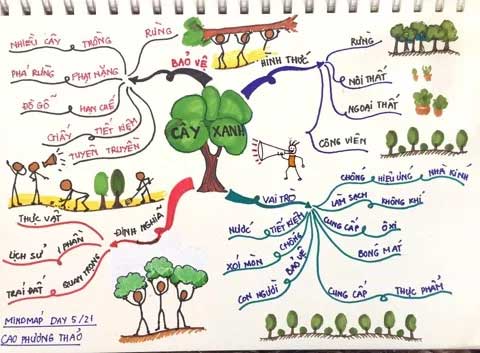 CÂY XANH
BẢO VỆ
RỪNG
TRỒNG
NHIỀU CÂY
PHẠT NẶNG
PHÁ RỪNG
HẠN CHẾ
ĐỒ GỖ
TIẾT KIỆM
GIẤY
TUYÊN TRUYỀN
HÌNH THỨC
RỪNG
NỘI THẤT
NGOẠI THẤT
CÔNG VIÊN
VAI TRÒ
CHỐNG HIỆU ỨNG NHÀ KÍNH
LÀM SẠCH KHÔNG KHÍ
CUNG CẤP ÔXI
BÓNG MÁT
CUNG CẤP THỰC PHẨM
BẢO VỆ
CON NGƯỜI
CHỐNG
XÓI MÒN
TIẾT KIỆM
NƯỚC
ĐỊNH NGHĨA
THỰC VẬT
1 PHẦN
LỊCH SỬ
QUAN TRỌNG
TRÁI ĐẤT
MINDMAP DAY 5/21
CAO PHƯƠNG THẢO